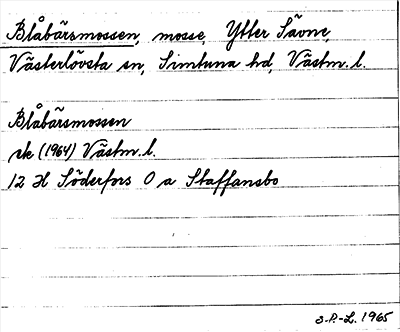 Blåbärsmossen, mosse, Ytter Sävne,
Västerlövsta sn, Simtuna hd, Västm. l.
Blåbärsmossen
ek (1964) Västm. l.
12 H Söderfors O a Staffansbo
J.-P.-L. 1965